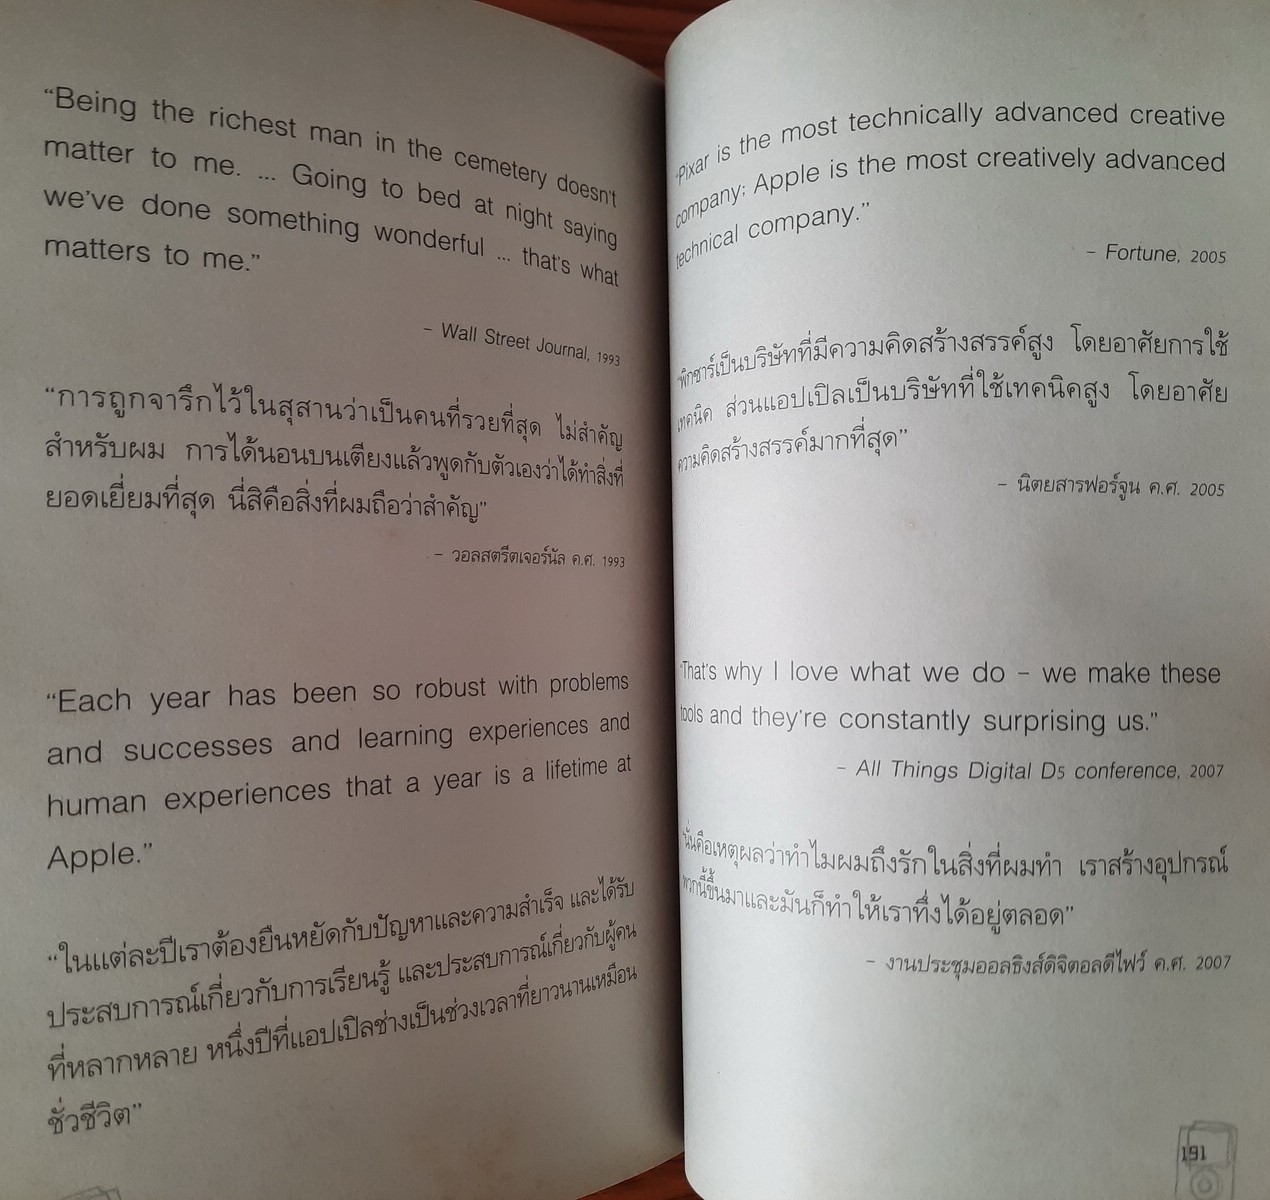 “Being the richest man in the cemetery doesn't
matter to me. ... Going to bed at night saying
we've done something wonderful ... that's what
matters to me.”
– Wall Street Journal, 1993
“การถูกจารึกไว้ในสุสานว่าเป็นคนที่รวยที่สุด ไม่สำคัญ
สำหรับผม การได้นอนบนเตียงแล้วพูดกับตัวเองว่าได้ทำสิ่งที่
ยอดเยี่ยมที่สุด นี่สิคือสิ่งที่ผมถือว่าสำคัญ”
– วอลสตรีตเจอร์นัล ค.ศ. 1993
“Each year has been so robust with problems
and successes and learning experiences and
human experiences that a year is a lifetime at
Apple.”
“ในแต่ละปีเราต้องยืนหยัดกับปัญหาและความสำเร็จ และได้รับ
ประสบการณ์เกี่ยวกับการเรียนรู้ และประสบการณ์เกี่ยวกับผู้คน
ที่หลากหลาย หนึ่งปีที่แอปเปิลช่างเป็นช่วงเวลาที่ยาวนานเหมือน
ชั่วชีวิต”
“Pixar is the most technically advanced creative
company; Apple is the most creatively advanced
technical company.”
– Fortune, 2005
“พิกซาร์เป็นบริษัทที่มีความคิดสร้างสรรค์สูง โดยอาศัยการใช้
เทคนิค ส่วนแอปเปิลเป็นบริษัทที่ใช้เทคนิคสูง โดยอาศัย
ความคิดสร้างสรรค์มากที่สุด”
– นิตยสารฟอร์จูน ค.ศ. 2005
“That's why I love what we do – we make these
tools and they're constantly surprising us.”
– All Things Digital D5 conference, 2007
“นั่นคือเหตุผลว่าทำไมผมถึงรักในสิ่งที่ผมทำ เราสร้างอุปกรณ์
พวกนี้ขึ้นมาและมันก็ทำให้เราทึ่งได้อยู่ตลอด”
– งานประชุมออลธิงส์ดิจิตอลดีไฟว์ ค.ศ. 2007
191